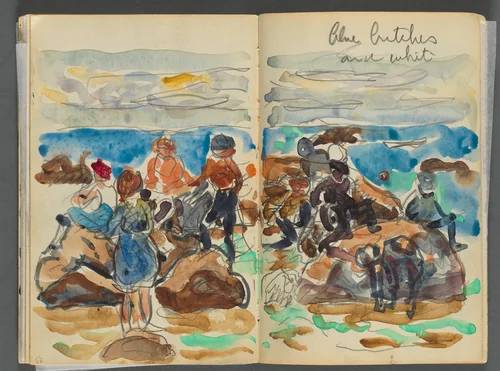 blue britches
and white